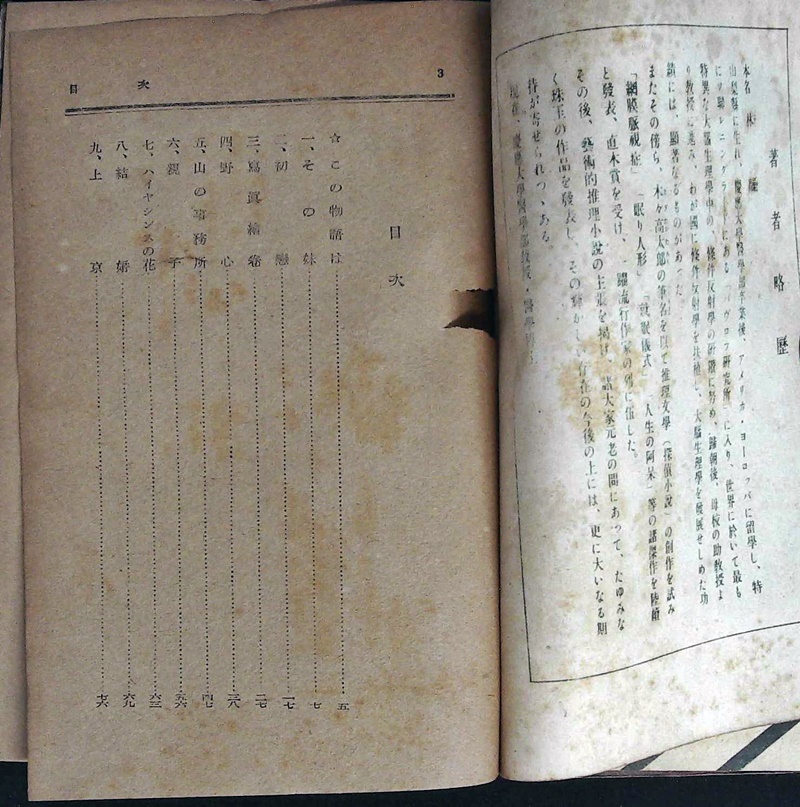 著者略歴
本名 林 髞
山梨縣に生れ、慶應大學醫學部卒業後、アメリカ・ヨーロッパに留學し、特
にソ聯レニングラードにあるパヴロフ研究所に入り、世界に於いて最も
特異な大腦生理學中の、條件反射學の研鑽に努め、歸朝後、母校の助教授よ
り教授に進み、わが國に條件反射學を扶植し、大腦生理學を發展せしめた功
績には、顯著なるものがあつた。
またその傍ら、木々高太郎の筆名を以て推理文學(探偵小説)の創作を試み
「網膜脈視症」「眠り人形」「就眠儀式」「人生の阿呆」等の諸傑作を陸續
と發表、直木賞を受け、一躍流行作家の列に伍した。
その後、藝術的推理小説の主張を掲げ、諸大家元老の間にあつて、たゆみな
く珠玉の作品を發表し、その輝かしい存在の今後の上には、更に大いなる期
待が寄せられつゝある。
現在、慶應大學醫學部教授・醫學博士
目次 3
目次
☆この物語は……五
一、その妹……七
二、初戀……一七
三、寫眞繪卷……二七
四、野心……三八
五、山の事務所……四七
六、親子……五六
七、ハイヤシンスの花……六三
八、結婚……六九
九、上京……七六